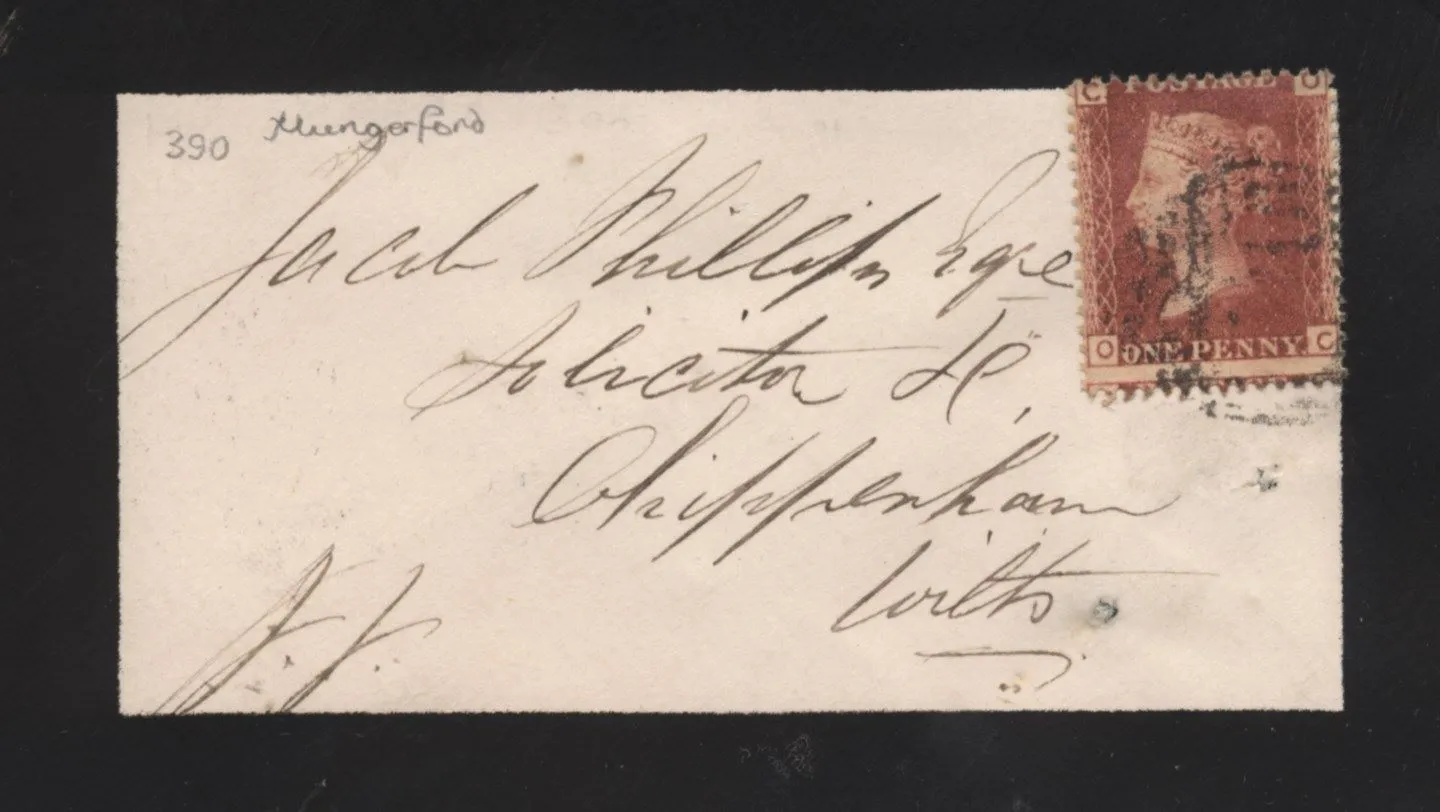 390 Hungerford
C POSTAGE O
Jacob Phillips Esqre
Solicitor &c,
Chippenham
Wilts
O ONE PENNY. C
J. J.